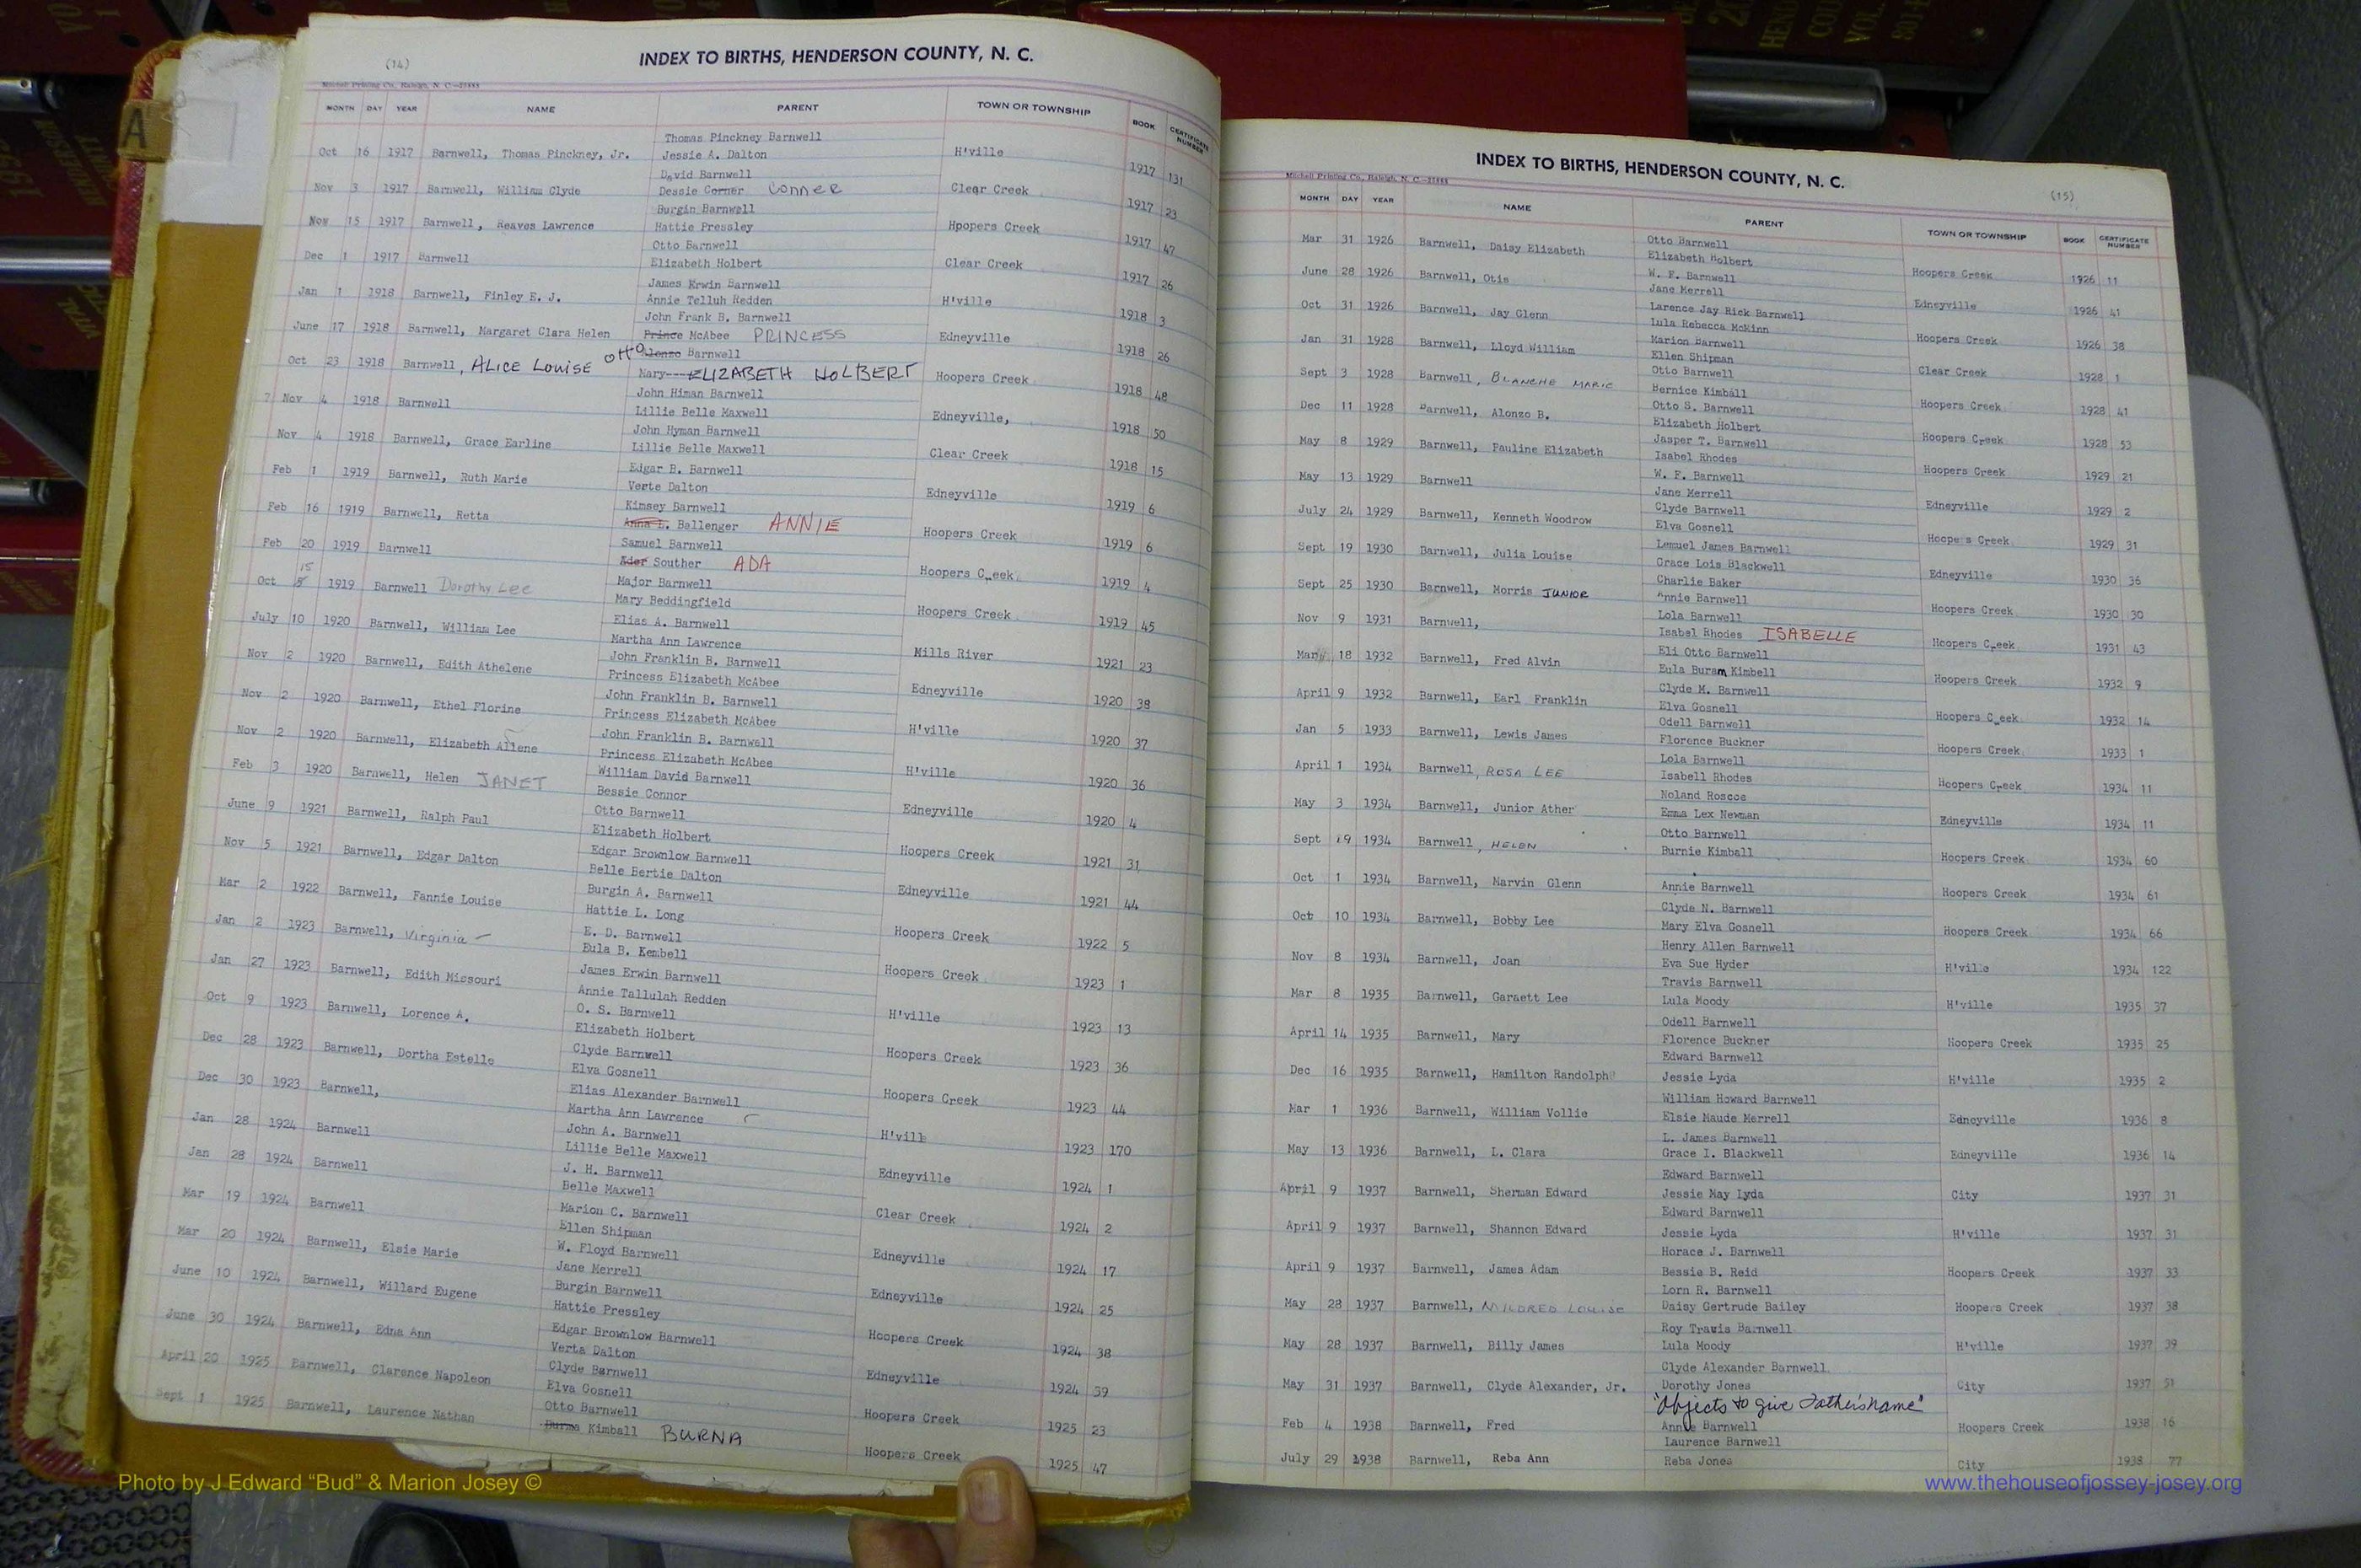 (14)
INDEX TO BIRTHS, HENDERSON COUNTY, N. C.
Mitchell Printing Co., Raleigh, N. C.—25888
MONTH DAY YEAR NAME PARENT TOWN OR TOWNSHIP BOOK CERTIFICATE NUMBER
Thomas Pinckney Barnwell
Oct 16 1917 Barnwell, Thomas Pinckney, Jr. Jessie A. Dalton H'ville 1917 131
David Barnwell
Nov 3 1917 Barnwell, William Clyde Dessie Corner Conner Clear Creek 1917 23
Burgin Barnwell
Nov 15 1917 Barnwell, Reaves Lawrence Hattie Pressley Hpopers Creek 1917 47
Otto Barnwell
Dec 1 1917 Barnwell Elizabeth Holbert Clear Creek 1917 26
James Erwin Barnwell
Jan 1 1918 Barnwell, Finley E. J. Annie Telluh Redden H'ville 1918 3
John Frank B. Barnwell
June 17 1918 Barnwell, Margaret Clara Helen Prince McAbee PRINCESS Edneyville 1918 26
Otto Alonzo Barnwell
Oct 23 1918 Barnwell, ALICE LOUISE Mary--- ELIZABETH HOLBERT Hoopers Creek 1918 48
John Himan Barnwell
? Nov 4 1918 Barnwell Lillie Belle Maxwell Edneyville, 1918 50
John Hyman Barnwell
Nov 4 1918 Barnwell, Grace Earline Lillie Belle Maxwell Clear Creek 1918 15
Edgar B. Barnwell
Feb 1 1919 Barnwell, Ruth Marie Verte Dalton Edneyville 1919 6
Kimsey Barnwell
Feb 16 1919 Barnwell, Retta Anna L. Ballenger ANNIE Hoopers Creek 1919 6
Samuel Barnwell
Feb 20 1919 Barnwell Ader Souther ADA Hoopers Creek 1919 4
15 Major Barnwell
Oct 5 1919 Barnwell Dorothy Lee Mary Beddingfield Hoopers Creek 1919 45
Elias A. Barnwell
July 10 1920 Barnwell, William Lee Martha Ann Lawrence Mills River 1921 23
John Franklin B. Barnwell
Nov 2 1920 Barnwell, Edith Athelene Princess Elizabeth McAbee Edneyville 1920 38
John Franklin B. Barnwell
Nov 2 1920 Barnwell, Ethel Florine Princess Elizabeth McAbee H'ville 1920 37
John Franklin B. Barnwell
Nov 2 1920 Barnwell, Elizabeth Allene Princess Elizabeth McAbee H'ville 1920 36
William David Barnwell
Feb 3 1920 Barnwell, Helen JANET Bessie Connor Edneyville 1920 4
Otto Barnwell
June 9 1921 Barnwell, Ralph Paul Elizabeth Holbert Hoopers Creek 1921 31
Edgar Brownlow Barnwell
Nov 5 1921 Barnwell, Edgar Dalton Belle Bertie Dalton Edneyville 1921 44
Burgin A. Barnwell
Mar 2 1922 Barnwell, Fannie Louise Hattie L. Long Hoopers Creek 1922 5
E. D. Barnwell
Jan 2 1923 Barnwell, Virginia Eula B. Kembell Hoopers Creek 1923 1
James Erwin Barnwell
Jan 27 1923 Barnwell, Edith Missouri Annie Tallulah Redden H'ville 1923 13
O. S. Barnwell
Oct 9 1923 Barnwell, Lorence A. Elizabeth Holbert Hoopers Creek 1923 36
Clyde Barnwell
Dec 28 1923 Barnwell, Dortha Estelle Elva Gosnell Hoopers Creek 1923 44
Elias Alexander Barnwell
Dec 30 1923 Barnwell, Martha Ann Lawrence H'vill 1923 170
John A. Barnwell
Jan 28 1924 Barnwell Lillie Belle Maxwell Edneyville 1924 1
J. H. Barnwell
Jan 28 1924 Barnwell Belle Maxwell Clear Creek 1924 2
Marion C. Barnwell
Mar 19 1924 Barnwell Ellen Shipman Edneyville 1924 17
W. Floyd Barnwell
Mar 20 1924 Barnwell, Elsie Marie Jane Merrell Edneyville 1924 25
Burgin Barnwell
June 10 1924 Barnwell, Willard Eugene Hattie Pressley Hoopers Creek 1924 38
Edgar Brownlow Barnwell
June 30 1924 Barnwell, Edna Ann Verta Dalton Edneyville 1924 39
Clyde Barnwell
April 20 1925 Barnwell, Clarence Napoleon Elva Gosnell Hoopers Creek 1925 23
Otto Barnwell
Sept 1 1925 Barnwell, Laurence Nathan Burma Kimball BURNA Hoopers Creek 1925 47
(15)
INDEX TO BIRTHS, HENDERSON COUNTY, N. C.
Mitchell Printing Co., Raleigh, N. C.—25888
MONTH DAY YEAR NAME PARENT TOWN OR TOWNSHIP BOOK CERTIFICATE NUMBER
Otto Barnwell
Mar 31 1926 Barnwell, Daisy Elizabeth Elizabeth Holbert Hoopers Creek 1926 11
W. F. Barnwell
June 28 1926 Barnwell, Otis Jane Merrell Edneyville 1926 41
Larence Jay Rick Barnwell
Oct 31 1926 Barnwell, Jay Glenn Lula Rebecca McKinn Hoopers Creek 1926 38
Marion Barnwell
Jan 31 1928 Barnwell, Lloyd William Ellen Shipman Clear Creek 1928 1
Otto Barnwell
Sept 3 1928 Barnwell, BLANCHE MARIE Bernice Kimball Hoopers Creek 1928 41
Otto S. Barnwell
Dec 11 1928 Barnwell, Alonzo B. Elizabeth Holbert Hoopers Creek 1928 53
Jasper T. Barnwell
May 8 1929 Barnwell, Pauline Elizabeth Isabel Rhodes Hoopers Creek 1929 21
W. F. Barnwell
May 13 1929 Barnwell Jane Merrell Edneyville 1929 2
Clyde Barnwell
July 24 1929 Barnwell, Kenneth Woodrow Elva Gosnell Hoopers Creek 1929 31
Lemuel James Barnwell
Sept 19 1930 Barnwell, Julia Louise Grace Lois Blackwell Edneyville 1930 36
Charlie Baker
Sept 25 1930 Barnwell, Morris JUNIOR Annie Barnwell Hoopers Creek 1930 30
Lola Barnwell
Nov 9 1931 Barnwell, Isabel Rhodes ISABELLE Hoopers Creek 1931 43
Eli Otto Barnwell
Mar 18 1932 Barnwell, Fred Alvin Eula Buram Kimbell Hoopers Creek 1932 9
Clyde M. Barnwell
April 9 1932 Barnwell, Earl Franklin Elva Gosnell Hoopers Creek 1932 14
Odell Barnwell
Jan 5 1933 Barnwell, Lewis James Florence Buckner Hoopers Creek 1933 1
Lola Barnwell
April 1 1934 Barnwell, ROSA LEE Isabell Rhodes Hoopers Creek 1934 11
Noland Roscoe
May 3 1934 Barnwell, Junior Ather Emma Lex Newman Edneyville 1934 11
Otto Barnwell
Sept 19 1934 Barnwell, HELEN Burnie Kimball Hoopers Creek 1934 60
Oct 1 1934 Barnwell, Marvin Glenn Annie Barnwell Hoopers Creek 1934 61
Clyde N. Barnwell
Oct 10 1934 Barnwell, Bobby Lee Mary Elva Gosnell Hoopers Creek 1934 66
Henry Allen Barnwell
Nov 8 1934 Barnwell, Joan Eva Sue Hyder H'ville 1934 122
Travis Barnwell
Mar 8 1935 Barnwell, Garnett Lee Lula Moody H'ville 1935 37
Odell Barnwell
April 14 1935 Barnwell, Mary Florence Buckner Hoopers Creek 1935 25
Edward Barnwell
Dec 16 1935 Barnwell, Hamilton Randolph Jessie Lyda H'ville 1935 2
William Howard Barnwell
Mar 1 1936 Barnwell, William Vollie Elsie Maude Merrell Edneyville 1936 8
L. James Barnwell
May 13 1936 Barnwell, L. Clara Grace I. Blackwell Edneyville 1936 14
Edward Barnwell
April 9 1937 Barnwell, Sherman Edward Jessie May Lyda City 1937 31
Edward Barnwell
April 9 1937 Barnwell, Shannon Edward Jessie Lyda H'ville 1937 31
Horace J. Barnwell
April 9 1937 Barnwell, James Adam Bessie B. Reid Hoopers Creek 1937 33
Lorn R. Barnwell
May 28 1937 Barnwell, MILDRED LOUISE Daisy Gertrude Bailey Hoopers Creek 1937 38
Roy Travis Barnwell
May 28 1937 Barnwell, Billy James Lula Moody H'ville 1937 39
Clyde Alexander Barnwell
May 31 1937 Barnwell, Clyde Alexander, Jr. Dorothy Jones City 1937 51
"Objects to give Father's name"
Feb 4 1938 Barnwell, Fred Annie Barnwell Hoopers Creek 1938 16
Laurence Barnwell
July 29 1938 Barnwell, Reba Ann Reba Jones City 1938 77
Photo by J Edward "Bud" & Marion Josey ©
www.thehouseofjossey-josey.org